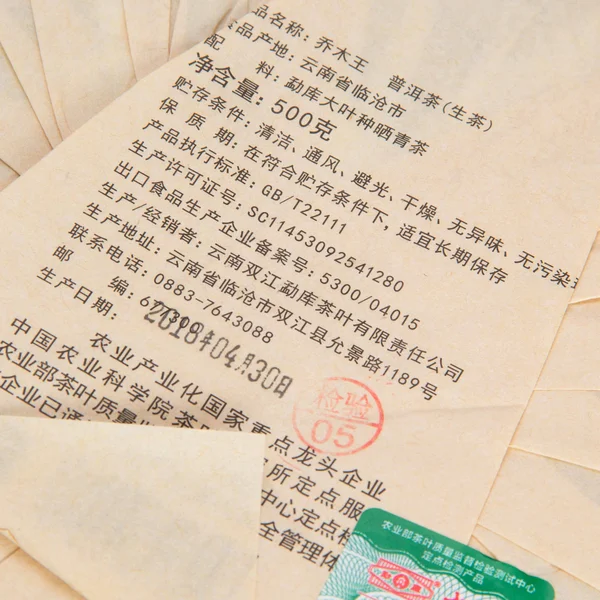 品名称: 乔木王 普洱茶(生茶)
食品产地: 云南省临沧市
配 料: 勐库大叶种晒青茶
净含量: 500克
贮存条件: 清洁、通风、避光、干燥、无异味、无污染
保 质 期: 在符合贮存条件下, 适宜长期保存
产品执行标准: GB/T22111
生产许可证号: SC11453092541280
出口食品生产企业备案号: 5300/04015
生产/经销者: 云南双江勐库茶叶有限责任公司
生产地址: 云南省临沧市双江县允景路1189号
联系电话: 0883-7643088
邮 编: 677300
生产日期: 2018年04月30日
检验
05
农业产业化国家重点龙头企业
中国农业科学院茶
所定点服
农业部茶叶质量
中心定点
企业已通
全管理体
农业部茶叶质量监督检验测试中心
定点检测产品